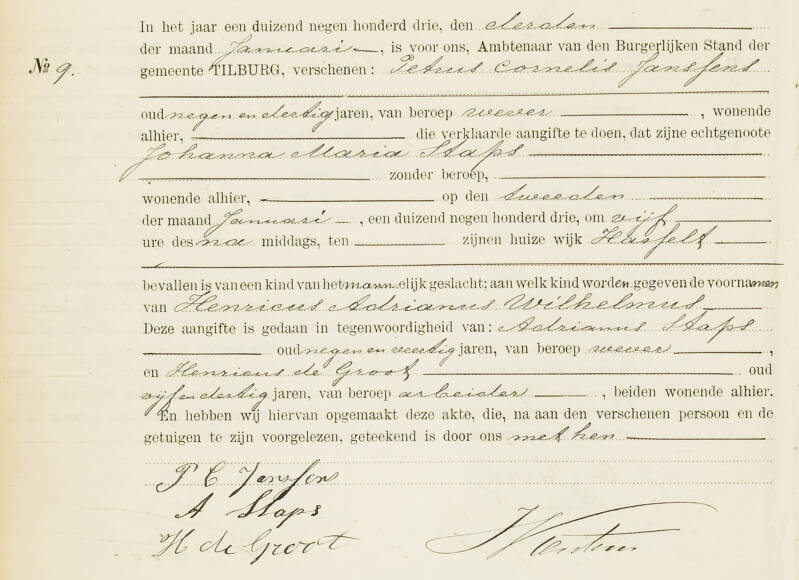 In het jaar een duizend negen honderd drie, den derden
der maand Januari, is voor ons, Ambtenaar van den Burgerlijken Stand der
No 9. gemeente TILBURG, verschenen: Petrus Cornelis Janssens
oud negen en dertig jaren, van beroep wever, wonende
alhier, die verklaarde aangifte te doen, dat zijne echtgenoote
Johanna Maria Staps
zonder beroep,
wonende alhier, op den tweeden
der maand Januari, een duizend negen honderd drie, om vijf
ure des na middags, ten zijnen huize wijk Hasselt
bevallen is van een kind van het mannelijk geslacht; aan welk kind worden gegeven de voornamen
van Henricus Adrianus Wilhelmus
Deze aangifte is gedaan in tegenwoordigheid van: Adrianus Staps
oud negen en veertig jaren, van beroep wever,
en Henricus de Groot oud
vijf en dertig jaren, van beroep arbeider, beiden wonende alhier.
En hebben wij hiervan opgemaakt deze akte, die, na aan den verschenen persoon en de
getuigen te zijn voorgelezen, geteekend is door ons met hen
P C Janssens
A Staps
H de Groot